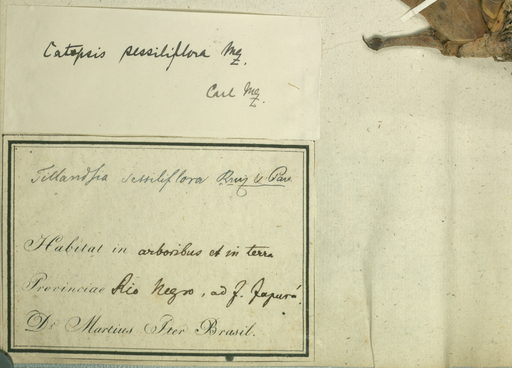 Catopsis sessiliflora Mez.
Carl Mez.
Tillandsia sessiliflora Ruiz & Pav.
Habitat in arboribus et in terra
Provinciae Rio Negro, ad f. Japurá.
Dr Martius Iter Brasil.